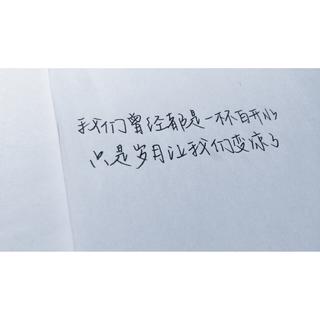 我们曾经都是一杯白开水
只是岁月让我们变凉了